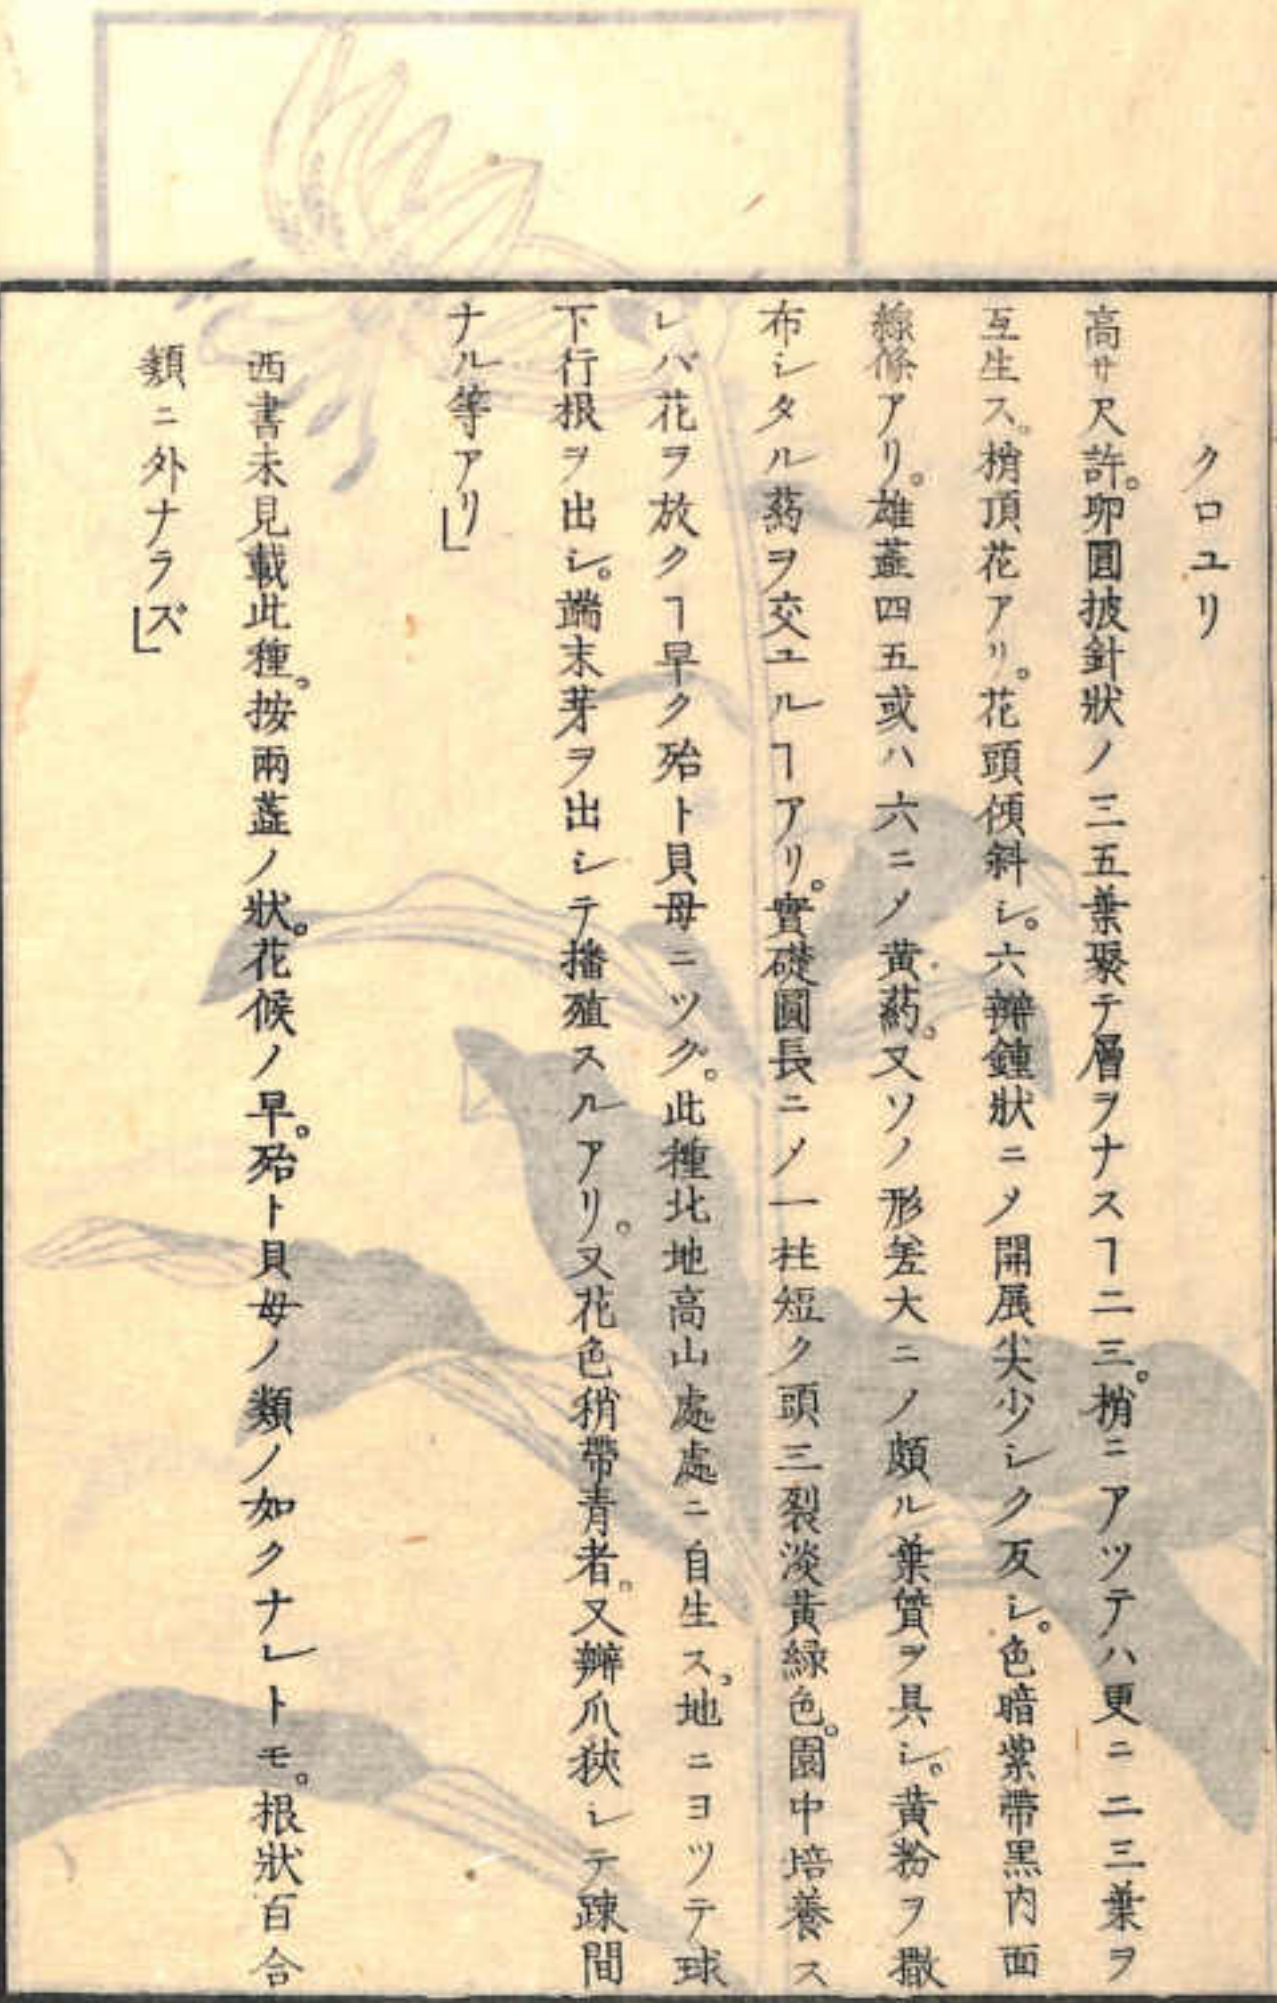 クロユリ
高サ尺許。卵圓披針狀ノ三五葉聚テ層ヲナスヿ二三。梢ニアツテハ更ニ二三葉ヲ
互生ス。梢頂花アリ。花頭傾斜シ。六瓣鐘狀ニメ開展尖少シク反シ。色暗紫帶黑内面
線條アリ。雄蕋四五或ハ六ニメ黃葯。又ソノ形差大ニノ頗ル葉質ヲ具シ。黃粉ヲ撒
布シタル葯ヲ交ユルヿアリ。實礎圓長ニノ一柱短ク頭三裂淡黃緑色。園中培養ス
レバ花ヲ放クヿ早ク殆ト貝母ニツグ。此種北地高山處處ニ自生ス。地ニヨツテ球
下行根ヲ出シ。端末芽ヲ出シテ播殖スルアリ。又花色稍帶青者。又瓣爪狹シテ踈間
ナル等アリ」
西書未見載此種。按兩蕋ノ狀。花候ノ早。殆ト貝母ノ類ノ如クナレトモ。根狀百合
類ニ外ナラズ」